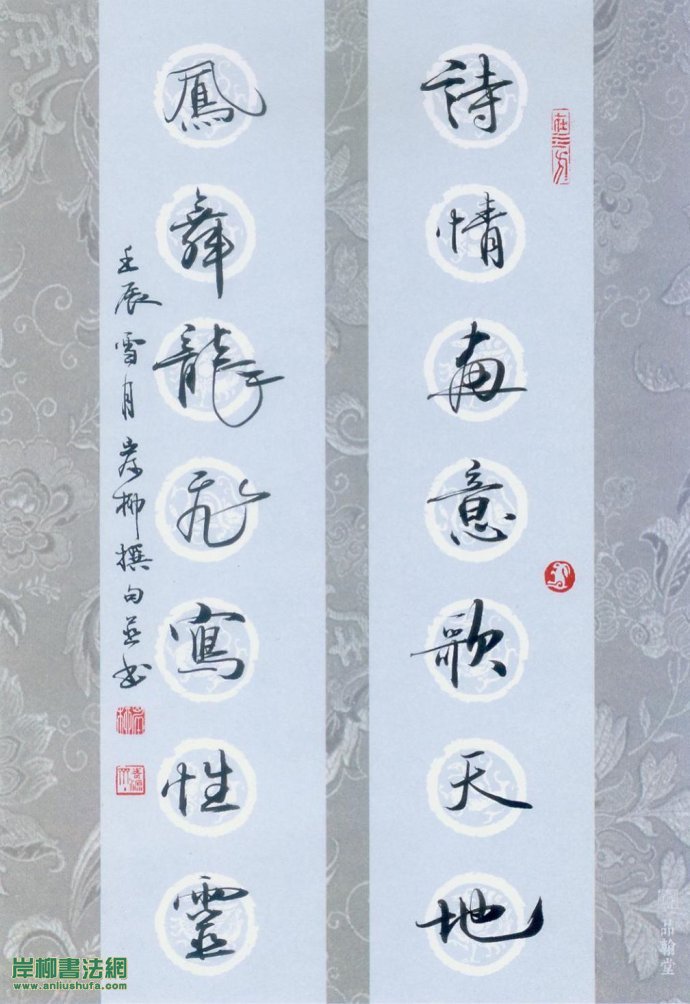 詩情畫意歌天地
鳳舞龍飛寫性靈
壬辰雪月岸柳撰句並書
岸柳書法網
www.anliushufa.com
品翰堂